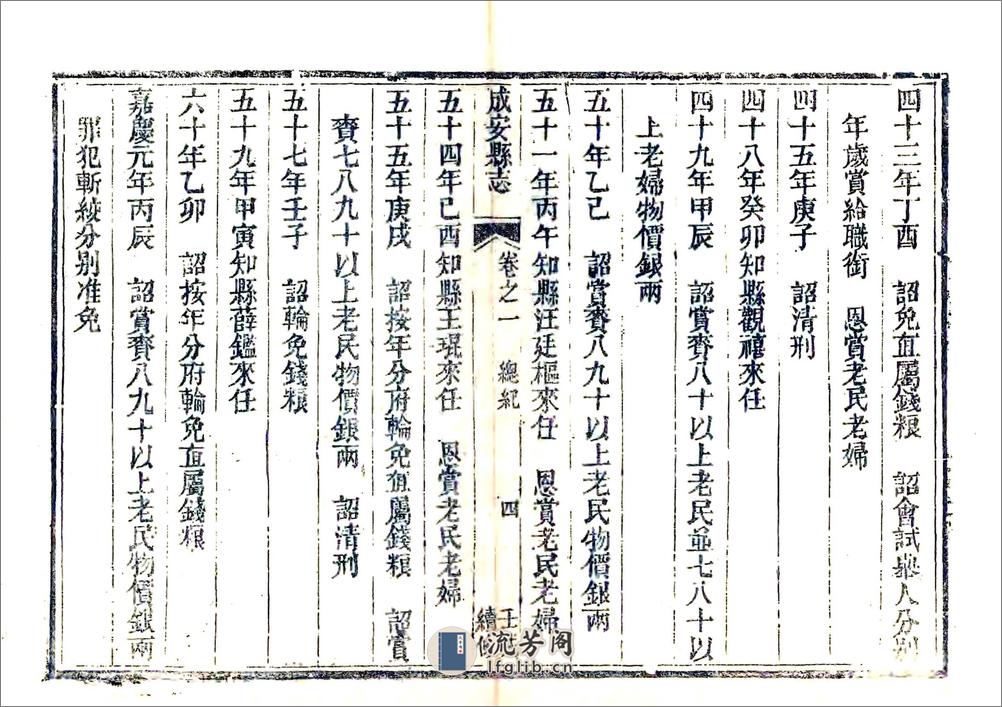 四十三年丁酉　詔免直屬錢粮　詔會試舉人分別
年歲賞給職銜　恩賞老民老婦
四十五年庚子　詔清刑
四十八年癸卯知縣觀禧來任
四十九年甲辰　詔賞賚八十以上老民並七八十以
上老婦物價銀兩
五十年乙巳　詔賞賚八九十以上老民物價銀兩
五十一年丙午知縣汪廷樞來任　恩賞老民老婦
成安縣志　卷之一　總紀　四
五十四年己酉知縣王琨來任　恩賞老民老婦
五十五年庚戌　詔按年分府輪免直屬錢粮　詔賞
賚七八九十以上老民物價銀兩　詔清刑
五十七年壬子　詔輪免錢粮
五十九年甲寅知縣薛鑑來任
六十年乙卯　詔按年分府輪免直屬錢粮
嘉慶元年丙辰　詔賞賚八九十以上老民物價銀兩
罪犯斬絞分別准免
流芳阁
lfglib.cn